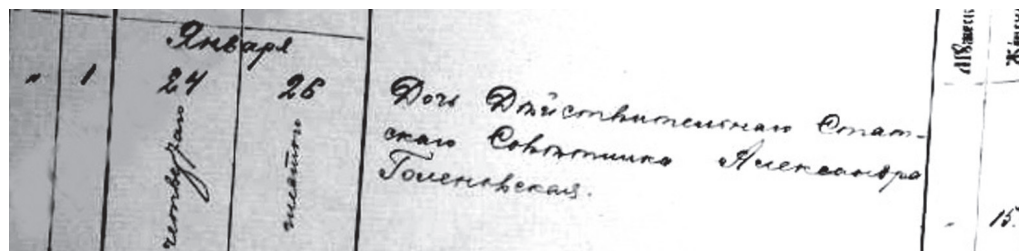 Января
" 1 24 26
четвертаго
шестаго
Дочь Дѣйствительнаго Стат-
скаго Совѣтника Александра
Голеновская.
" 15.